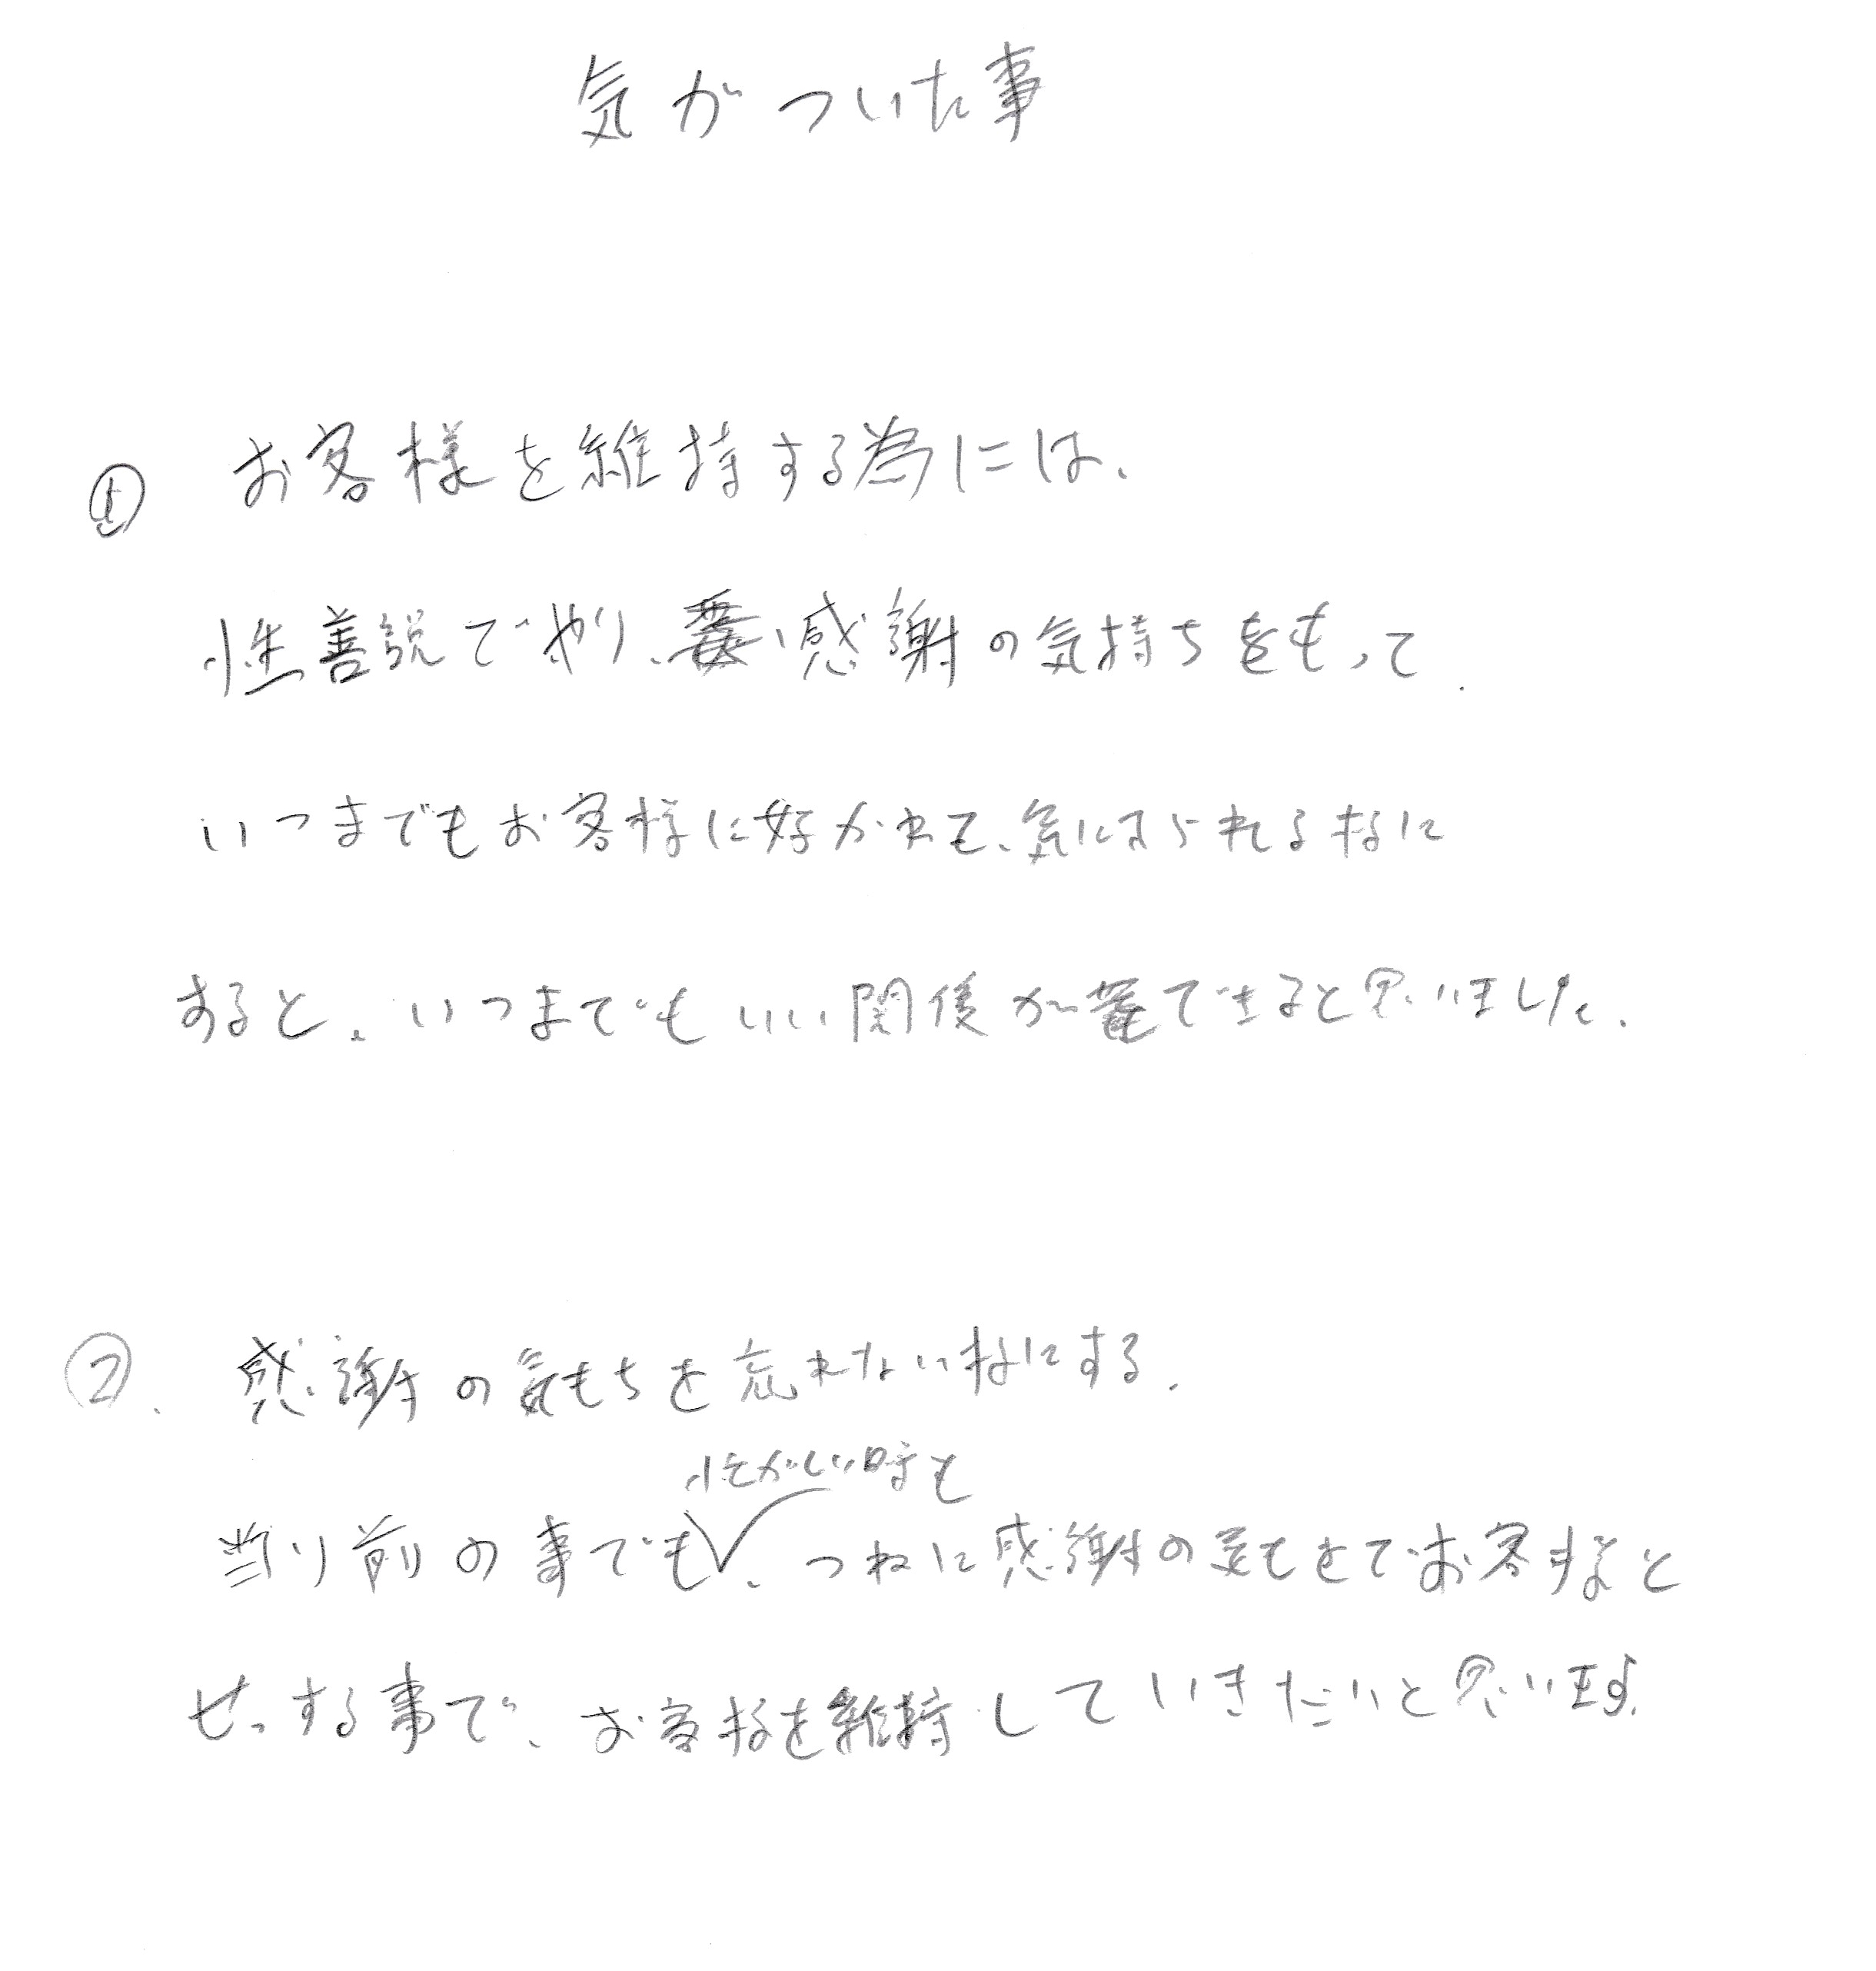 気がついた事
① お客様を維持する為には、
性善説でやり、感謝の気持ちをもって
いつまでもお客様に好かれて、気に入られる様に
すると、いつまでもいい関係ができると思いました。
②. 感謝の気もちを忘れない様にする。
忙がしい時も
当り前の事でも、つねに感謝の気もちでお客様と
せっする事で、お客様を維持していきたいと思います。